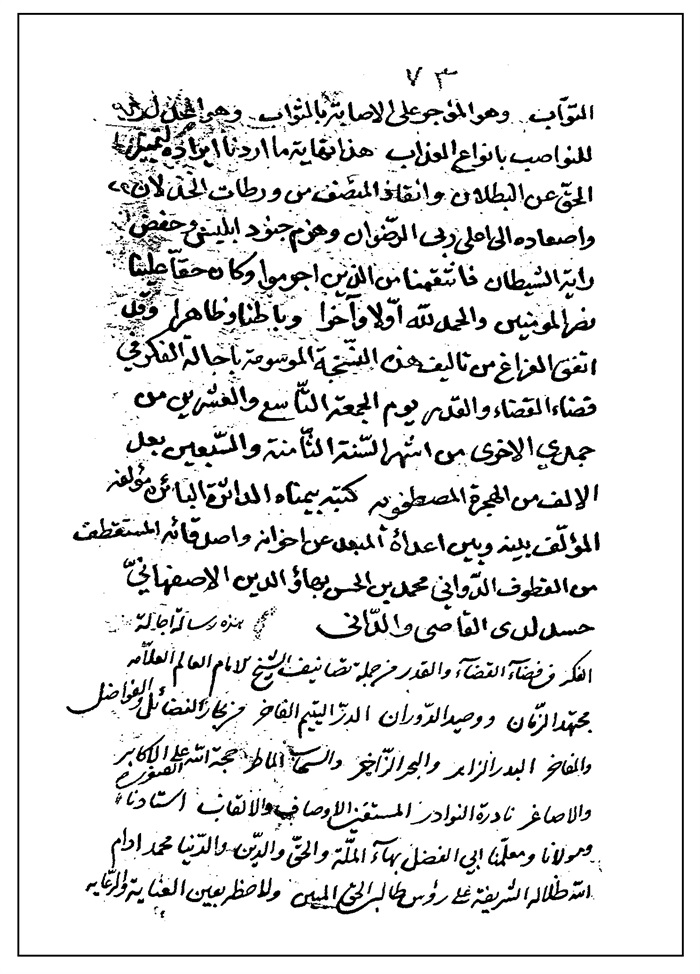 ٧٣
التوّاب وهو المؤجو على الاصابة بالثواب وهو المخذل
للنواصب بانواع العذاب هذا نهاية ما اردنا ايراده لتميّز
الحق عن البطلان وانقاذ المنصف من ورطات الخذلان
واصعاده الى اعلى ربى الرضوان وهزم جنود ابليس وخفض
راية الشيطان فانتقمنا من الذين اجرموا وكان حقّا علينا
نصر المومنين والحمد لله اوّلا وآخرا وباطنا وظاهرا وقد
اتفق الفراغ من تاليف هذه النسخة الموسومة باحالة الفكر في
قضاء القضاء والقدر يوم الجمعة التاسع والعشرين من
جمدي الاخرى من اشهر السّنة الثّامنة والسّبعين بعد
الالف من الهجرة المصطفويه كتبه بيمناه الداثرة البائره مؤلفه
المؤلّف بينه وبين اعدائه المبعد عن اخوانه واصدقائه المستقطف
من القطوف الدّواني محمد بن الحسن بهاؤ الدين الاصفهانيّ
حسد لدى القاصى والدّانى هذه رسالة اجالة
الفكر في فضآء القضآء والقدر من جملة تصانيف الشيخ الامام العالم العلّامه
مجتهد الزمان ووحيد الدّوران الدرّ اليتيم الفاخر من بحار الفضائل والفواضل
والمفاخر البدر الزاهر والبحر الزّاخر والسحاب الماطر حجة الله على الاكابر
والاصاغر نادرة النوادر المستغني الاوصاف والالقاب استادنا
ومولانا ومعلّمنا ابي الفضل بهآء الملّة والحقّ والدّين والدّنيا محمد ادام
الله ظلاله الشريفة على رؤس طالبي الحق المبين ولاحظ بعين العناية والرّعايه